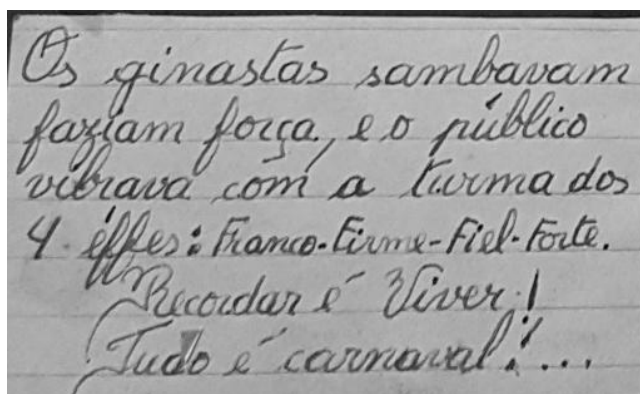 Os ginastas sambavam
faziam força, e o público
vibrava com a turma dos
4 éffes: Franco-Firme-Fiel-Forte.
Recordar é Viver!
Tudo é carnaval!...